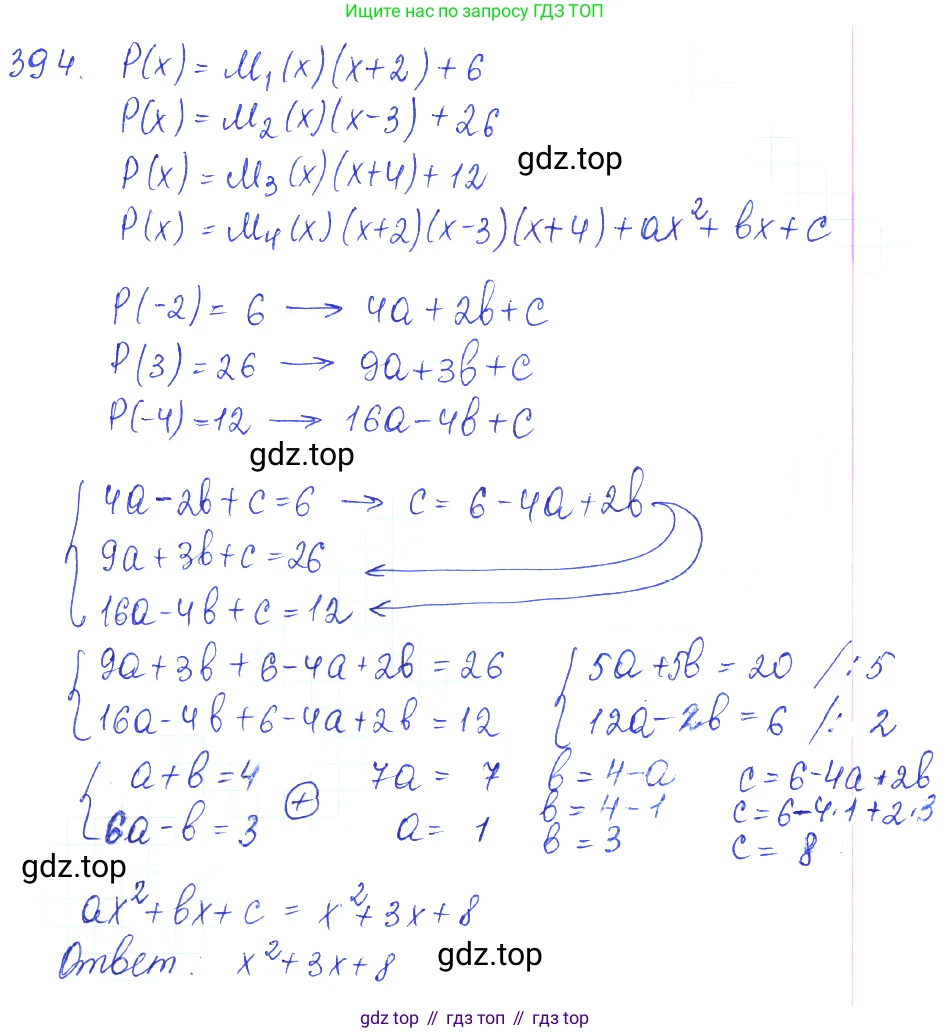 Ищите нас по запросу ГДЗ ТОП
394. P(x) = M₁(x)(x+2)+6
P(x) = M₂(x)(x-3)+26
gdz.top
P(x) = M₃(x)(x+4)+12
P(x) = M₄(x)(x+2)(x-3)(x+4)+ax²+bx+c
P(-2)= 6 → 4a+2b+c
P(3)=26 → 9a+3b+c
P(-4)=12 → 16a-4b+c
gdz.top
4a-2b+c=6 → c= 6-4a+2b
9a+3b+c=26
16a-4b+c=12
9a+3b+6-4a+2b=26 5a+5b=20 /:5
16a-4b+6-4a+2b=12 12a-2b=6 /: 2
a+b=4 7a= 7 b=4-a c=6-4a+2b
6a-b=3 (+) a= 1 b=4-1 c=6-4·1+2·3
b=3 c= 8
gdz.top
ax²+bx+c = x²+3x+8
Ответ: x²+3x+8 gdz.top
gdz top // гдз топ // гдз top